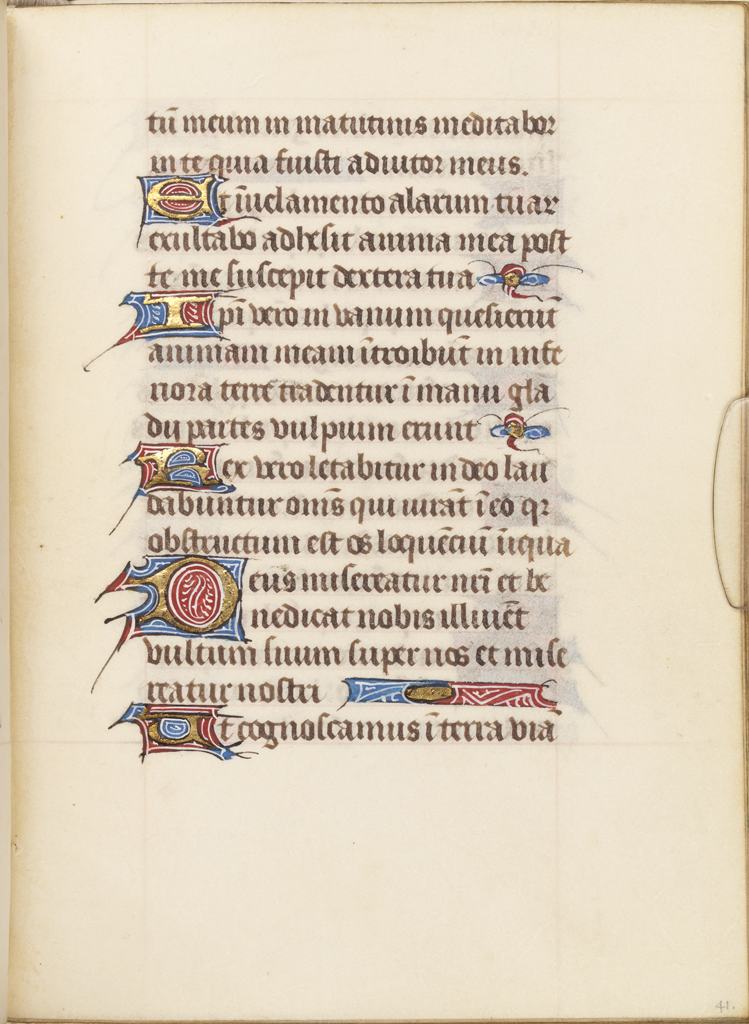 tū meum in matutinis meditabor
in te quia fuisti adiutor meus.
Et ī uelamento alarum tuar
exultabo adhesit anima mea post
te me suscepit dextera tua
Ipī vero in vanum quesierūt
animam meam ītroibūt in infe
riora terre tradentur ī manu gla
dij partes vulpium erunt
Rex vero letabitur in deo lau
dabuntur om̄s qui iurāt ī eo qr
obstructum est os loquēciū īiqua
Deus misereatur nrī et be
nedicat nobis illuīet
vultum suum super nos et mise
reatur nostri
Ut cognoscamus ī terra viā
41.